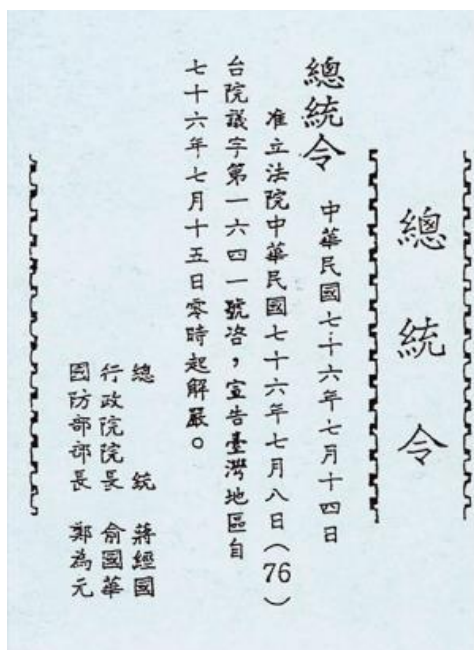 總統令
總統令 中華民國七十六年七月十四日
准立法院中華民國七十六年七月八日(76)
台院議字第一六四一號咨,宣告臺灣地區自
七十六年七月十五日零時起解嚴。
總統 蔣經國
行政院院長 俞國華
國防部部長 鄭為元